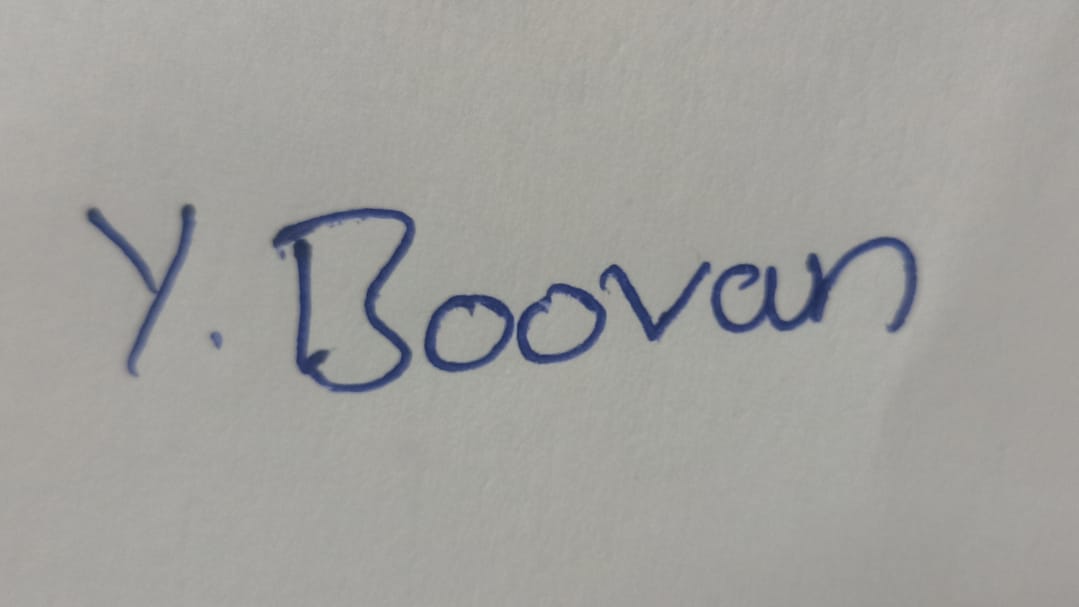 Y. Boovan